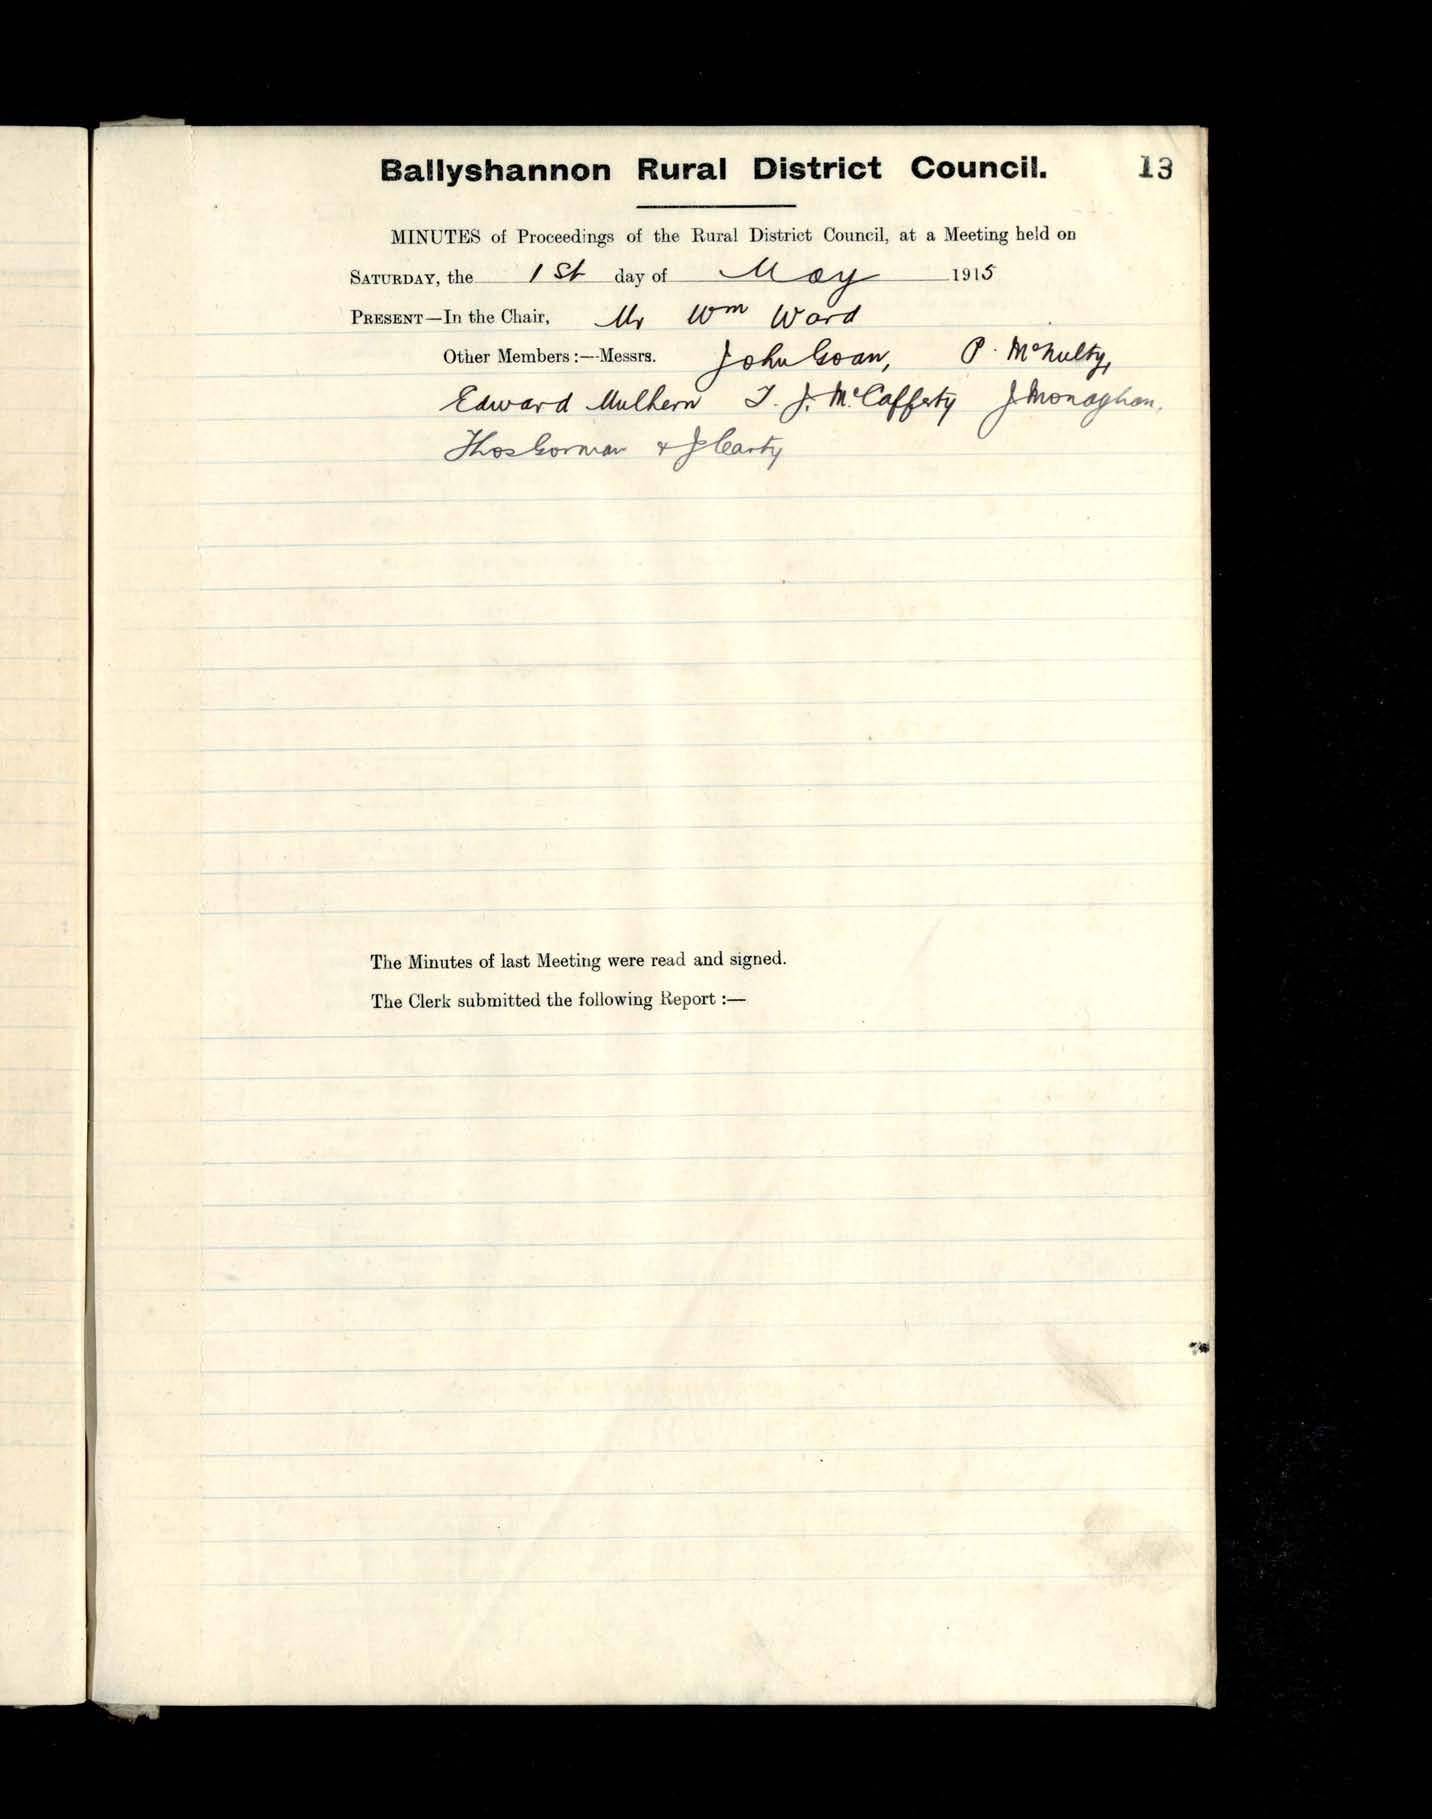 Ballyshannon Rural District Council. 13
MINUTES of Proceedings of the Rural District Council, at a Meeting held on
SATURDAY, the 1st day of May 1915
PRESENT—In the Chair, Mr Wm Ward
Other Members :—Messrs. John Goan, P. McNulty,
Edward Mulhern T. J. McCafferty J Monaghan,
Thos Gorman & J Carty
The Minutes of last Meeting were read and signed.
The Clerk submitted the following Report :—